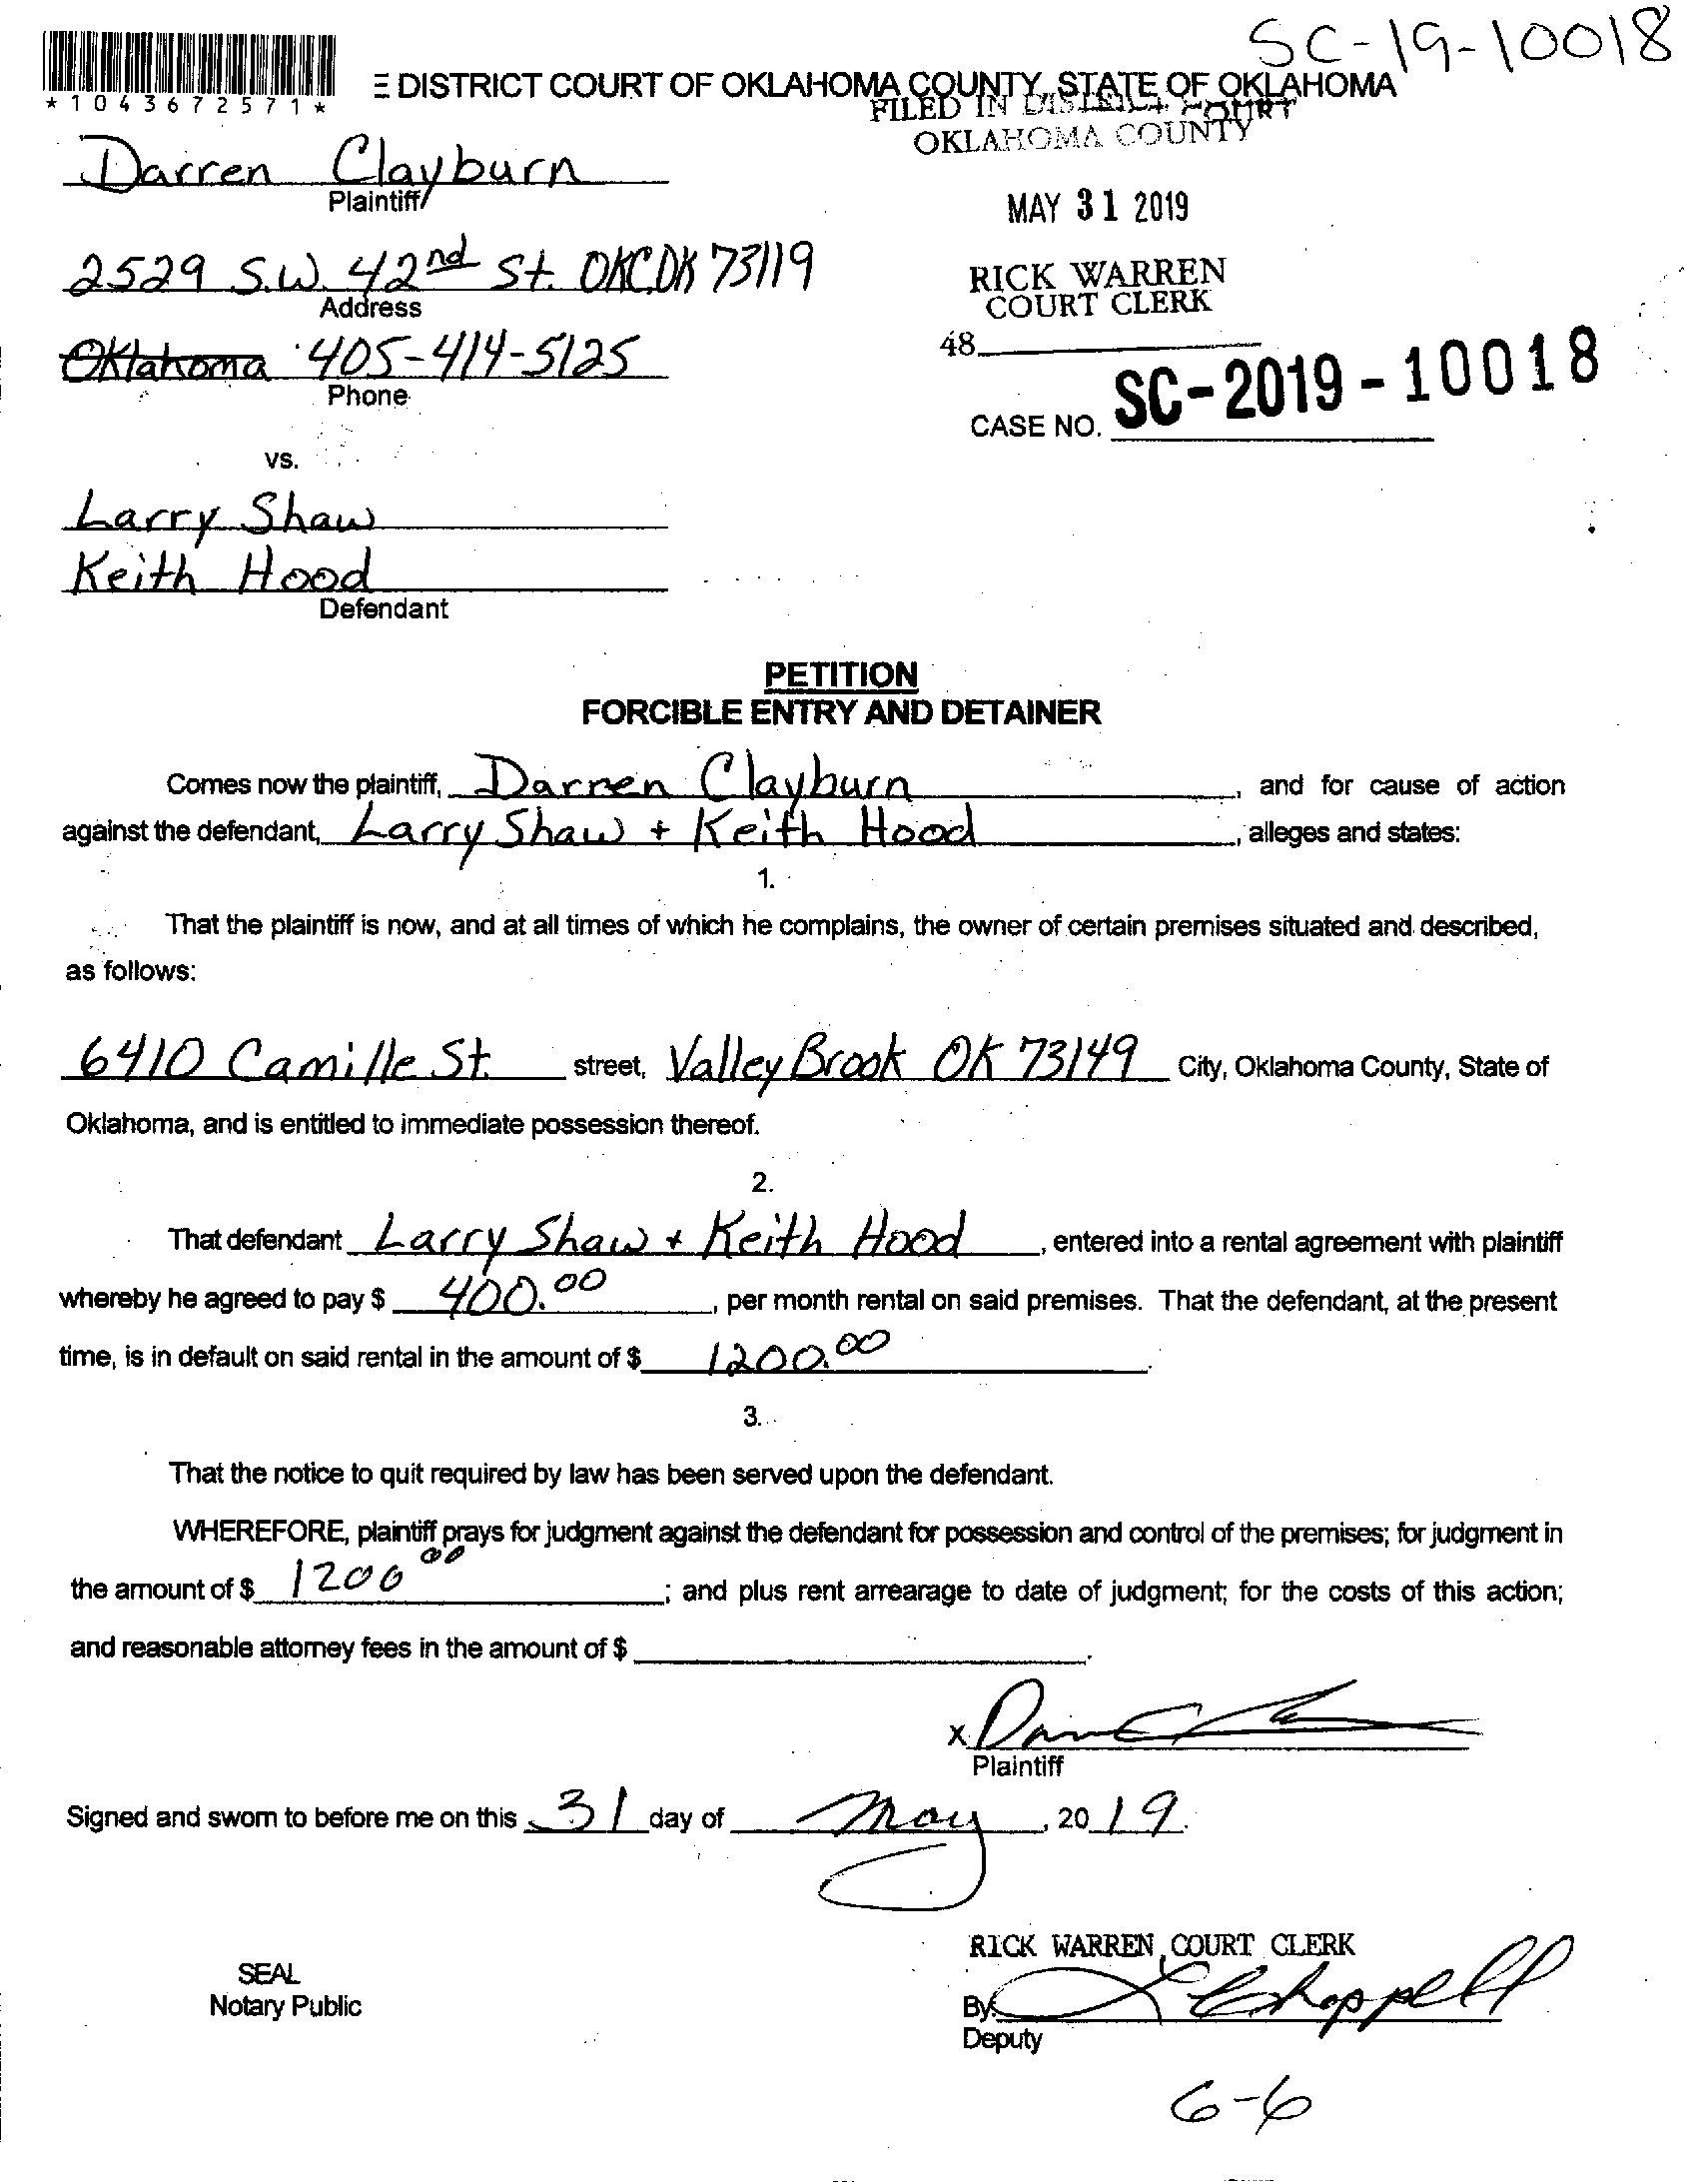 SC-19-10018
*1043672571*
E DISTRICT COURT OF OKLAHOMA COUNTY, STATE OF OKLAHOMA
FILED IN DISTRICT COURT
OKLAHOMA COUNTY
Darren Clayburn
Plaintiff
MAY 31 2019
2529 S.W. 42nd St. OKC OK 73119
Address
RICK WARREN
COURT CLERK
Oklahoma 405-414-5125
Phone
48
CASE NO. SC-2019-10018
vs.
Larry Shaw
Keith Hood
Defendant
PETITION
FORCIBLE ENTRY AND DETAINER
Comes now the plaintiff, Darren Clayburn, and for cause of action
against the defendant, Larry Shaw + Keith Hood, alleges and states:
1.
That the plaintiff is now, and at all times of which he complains, the owner of certain premises situated and described,
as follows:
6410 Camille St. street, Valley Brook OK 73149 City, Oklahoma County, State of
Oklahoma, and is entitled to immediate possession thereof.
2.
That defendant Larry Shaw + Keith Hood, entered into a rental agreement with plaintiff
whereby he agreed to pay $ 400.00, per month rental on said premises. That the defendant, at the present
time, is in default on said rental in the amount of $ 1200.00.
3.
That the notice to quit required by law has been served upon the defendant.
WHEREFORE, plaintiff prays for judgment against the defendant for possession and control of the premises; for judgment in
the amount of $ 1200 00; and plus rent arrearage to date of judgment; for the costs of this action;
and reasonable attorney fees in the amount of $ .
X
Plaintiff
Signed and sworn to before me on this 31 day of May, 2019.
RICK WARREN, COURT CLERK
SEAL
Notary Public
By Chappell
Deputy
6-6